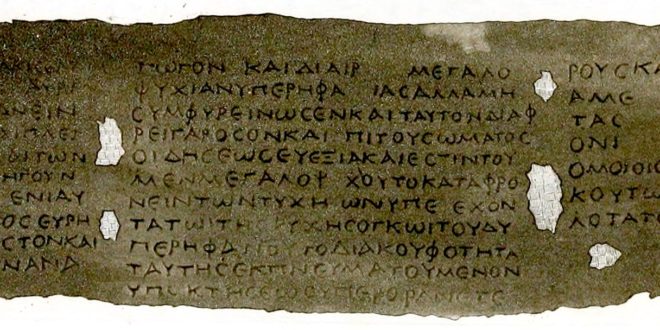 ΔΝΕΙΝ
ΔΙΤΩΝ
ΗΓΟΥΝ
ΕΝΙΑΥ
ΟCΕΥΡΗ
CΤΟΝΚΑΙ
ΝΑΝΔ
ΓΩΓΟΝ ΚΑΙΔΙΑΙΡ ΜΕΓΑΛΟ
ΨΥΧΙΑΝΥΠΕΡΗΦΑ ΙΑCΑΛΛΑΜΗ
CΥΜΦΥΡΕΙΝΩCΕΝΚΑΙΤΑΥΤΟΝΔΙΑΦ
ΡΕΙΓΑΡΟCΟΝΚΑΙ ΠΙΤΟΥCΩΜΑΤΟC
ΟΙΔΗCΕΩCΕΥΕΞΙΑΚΑΙΕCΤΙΝΤΟΥ
ΜΕΝΜΕΓΑΛΟΨ ΧΟΥΤΟΚΑΤΑΦΡΟ
ΝΕΙΝΤΩΝΤΥΧΗ ΩΝΥΠΕ ΕΧΟΝ
ΤΑΤΩΙΤΗ ΥΧΗCΟΓΚΩΙΤΟΥΔΥ
ΠΕΡΗΦΑΝΟΥ ΤΟΔΙΑΚΟΥΦΟΤΗΤΑ
ΤΑΥΤΗCΕΚΠΝΕΥΜΑΤΟΥΜΕΝΟΝ
ΡΟΥCΚΑ
ΑΜΕ
ΤΑC
ΟΝΙ
ΟΜΟΙΟΙC
ΚΟΥΤΩ
ΛΟΤΑΤΟ